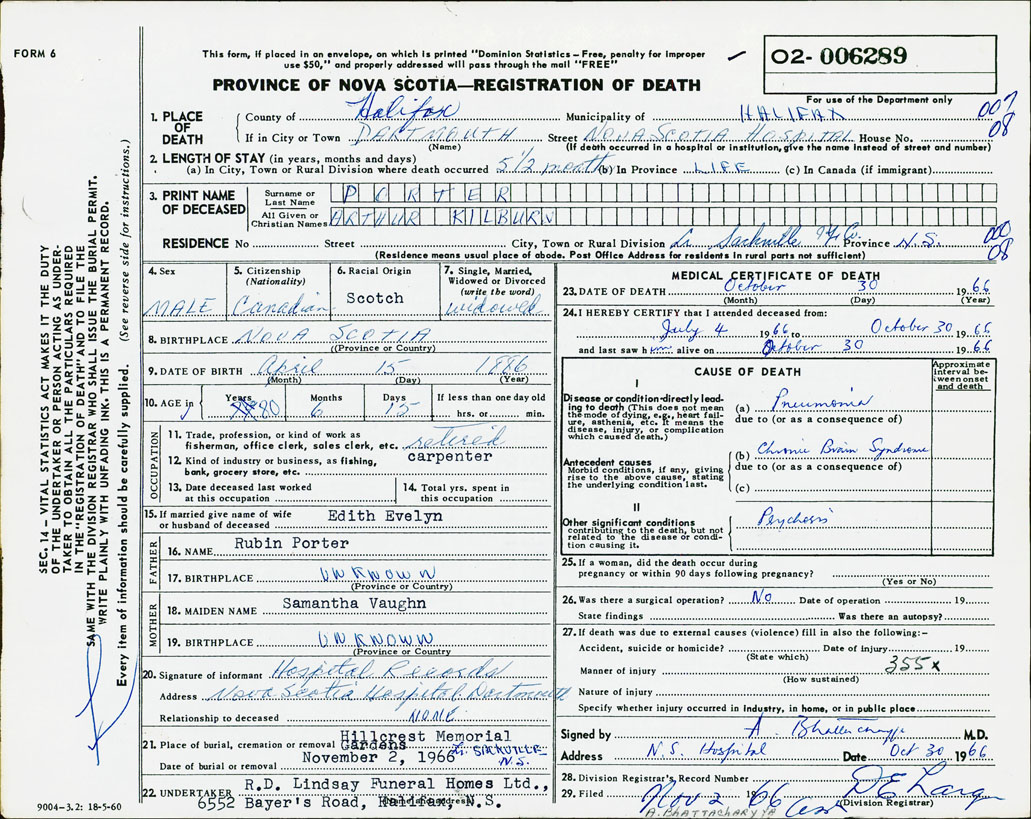 FORM 6
This form, if placed in an envelope, on which is printed "Dominion Statistics—Free, penalty for improper
use $50," and properly addressed will pass through the mail "FREE"
O2- 006289
PROVINCE OF NOVA SCOTIA—REGISTRATION OF DEATH
For use of the Department only
1. PLACE OF DEATH
County of Halifax Municipality of HALIFAX 007
If in City or Town DARTMOUTH Street NOVA SCOTIA HOSPITAL House No. 08
(Name) (If death occurred in a hospital or institution, give the name instead of street and number)
2. LENGTH OF STAY (in years, months and days)
(a) In City, Town or Rural Division where death occurred 5 1/2 month (b) In Province LIFE (c) In Canada (if immigrant)
3. PRINT NAME OF DECEASED
Surname or Last Name PORTER
All Given or Christian Names ARTHUR KILBURN
RESIDENCE No Street City, Town or Rural Division Lr. Sackville Hfx Co. Province N.S. 000
08
(Residence means usual place of abode. Post Office Address for residents in rural parts not sufficient)
4. Sex MALE
5. Citizenship (Nationality) Canadian
6. Racial Origin Scotch
7. Single, Married, Widowed or Divorced (write the word) widowed
8. BIRTHPLACE NOVA SCOTIA
(Province or Country)
9. DATE OF BIRTH April 15 1886
(Month) (Day) (Year)
10. AGE in Years 80 Months 6 Days 15 If less than one day old hrs. or min.
OCCUPATION
11. Trade, profession, or kind of work as fisherman, office clerk, sales clerk, etc. retired
12. Kind of industry or business, as fishing, bank, grocery store, etc. carpenter
13. Date deceased last worked at this occupation
14. Total yrs. spent in this occupation
15. If married give name of wife or husband of deceased Edith Evelyn
FATHER
16. NAME Rubin Porter
17. BIRTHPLACE UNKNOWN
(Province or Country)
MOTHER
18. MAIDEN NAME Samantha Vaughn
19. BIRTHPLACE UNKNOWN
(Province or Country)
20. Signature of informant Hospital Records
Address Nova Scotia Hospital Dartmouth
Relationship to deceased NONE
21. Place of burial, cremation or removal Hillcrest Memorial Gardens Lr. SACKVILLE N.S.
Date of burial or removal November 2, 1966
22. UNDERTAKER R.D. Lindsay Funeral Homes Ltd.,
6552 Bayer's Road, Halifax, N.S.
(Name and address)
9004-3.2: 18-5-60
MEDICAL CERTIFICATE OF DEATH
23. DATE OF DEATH October 30 1966
(Month) (Day) (Year)
24. I HEREBY CERTIFY that I attended deceased from:
July 4 1966 to October 30 1966
and last saw him alive on October 30 1966
CAUSE OF DEATH
Approximate interval between onset and death
I
Disease or condition directly leading to death (This does not mean the mode of dying, e.g., heart failure, asthenia, etc. It means the disease, injury, or complication which caused death.)
(a) Pneumonia
due to (or as a consequence of)
Antecedent causes
Morbid conditions, if any, giving rise to the above cause, stating the underlying condition last.
(b) Chronic Brain Syndrome
due to (or as a consequence of)
(c)
II
Other significant conditions contributing to the death, but not related to the disease or condition causing it.
Psychosis
25. If a woman, did the death occur during pregnancy or within 90 days following pregnancy?
(Yes or No)
26. Was there a surgical operation? No Date of operation 19
State findings Was there an autopsy?
27. If death was due to external causes (violence) fill in also the following:–
Accident, suicide or homicide? Date of injury 19
(State which)
Manner of injury 355x
(How sustained)
Nature of injury
Specify whether injury occurred in Industry, in home, or in public place
Signed by A. Bhattacharyya M.D.
Address N.S. Hospital Date Oct 30 1966
28. Division Registrar's Record Number
29. Filed Nov 2 1966
(Division Registrar)
A. BHATTACHARYYA
SEC. 14 – VITAL STATISTICS ACT MAKES IT THE DUTY
OF THE UNDERTAKER OR PERSON ACTING AS UNDER-
TAKER TO OBTAIN ALL THE PARTICULARS REQUIRED
IN THE "REGISTRATION OF DEATH" AND TO FILE THE
SAME WITH THE DIVISION REGISTRAR WHO SHALL ISSUE THE BURIAL PERMIT.
WRITE PLAINLY WITH UNFADING INK. THIS IS A PERMANENT RECORD.
Every item of information should be carefully supplied. (See reverse side for instructions.)